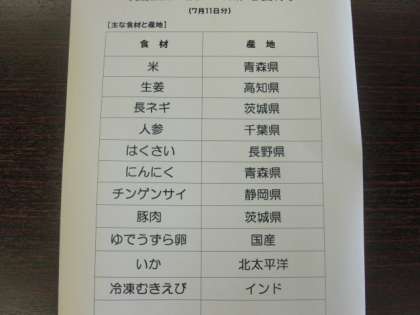 (7月11日分)
[主な食材と産地]
食 材 産 地
米 青森県
生姜 高知県
長ネギ 茨城県
人参 千葉県
はくさい 長野県
にんにく 青森県
チンゲンサイ 静岡県
豚肉 茨城県
ゆでうずら卵 国産
いか 北太平洋
冷凍むきえび インド